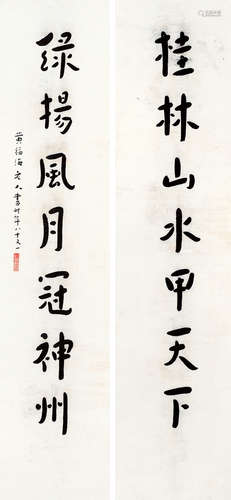 桂林山水甲天下
绿揚風月冠神州
黄福海老人書时年八十又一